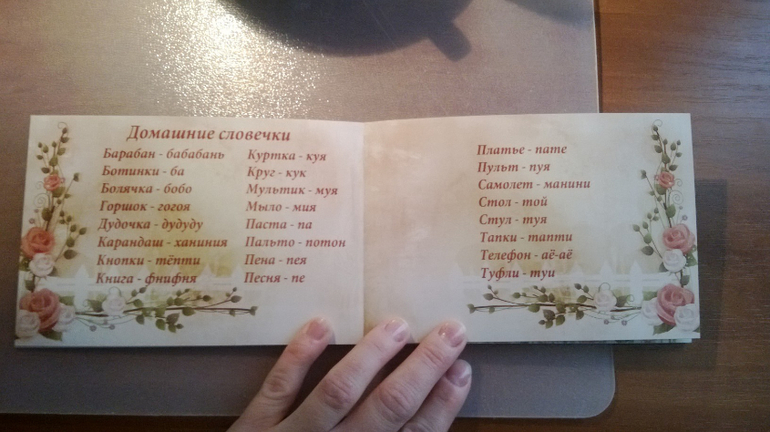 Домашние словечки
Барабан - бабабань
Ботинки - ба
Болячка - бобо
Горшок - гогоя
Дудочка - дудуду
Карандаш - ханиния
Кнопки - тёпти
Книга - фнифня
Куртка - куя
Круг - кук
Мультик - муя
Мыло - мия
Паста - па
Пальто - потон
Пена - пея
Песня - пе
Платье - пате
Пульт - пуя
Самолет - манини
Стол - той
Стул - туя
Тапки - тапти
Телефон - аё-аё
Туфли - туи